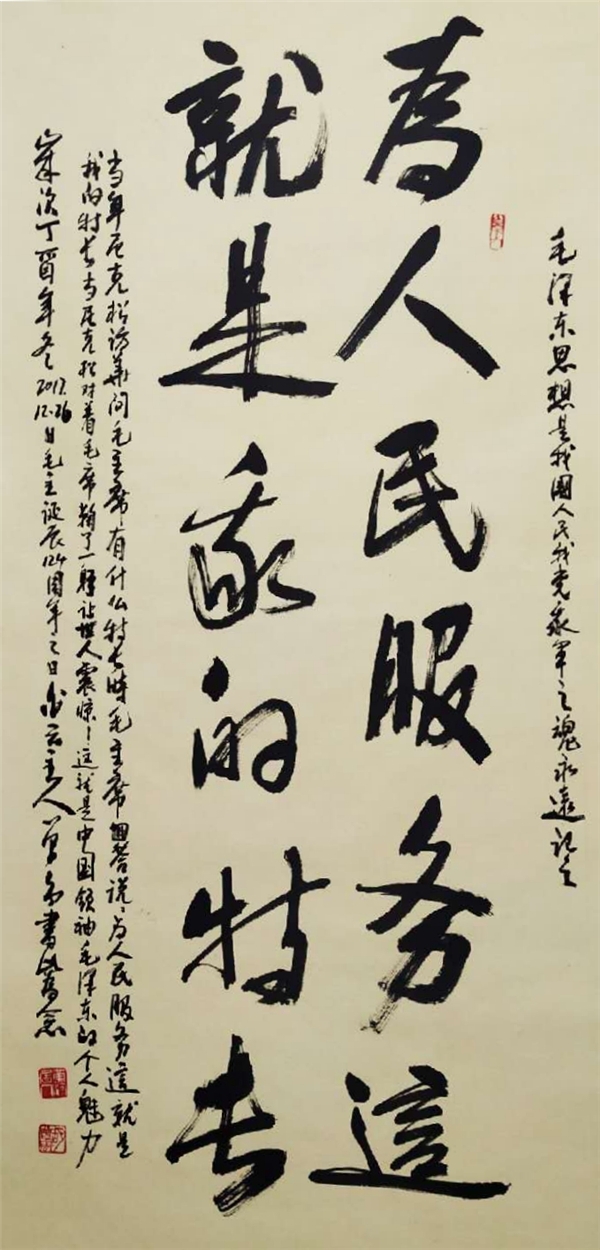 毛泽东思想是我國人民我党我军之魂永远记之
为人民服务這
就是我的特长
当年尼克松访華问毛主席有什么特长时毛主席回答说:为人民服务這就是
我的特长当尼克松对着毛席鞠了一躬让世人震惊!这就是中国领袖毛泽东的个人魅力
岁次丁酉年冬2017.12.26日毛主诞辰124周年之日 主人 书 念